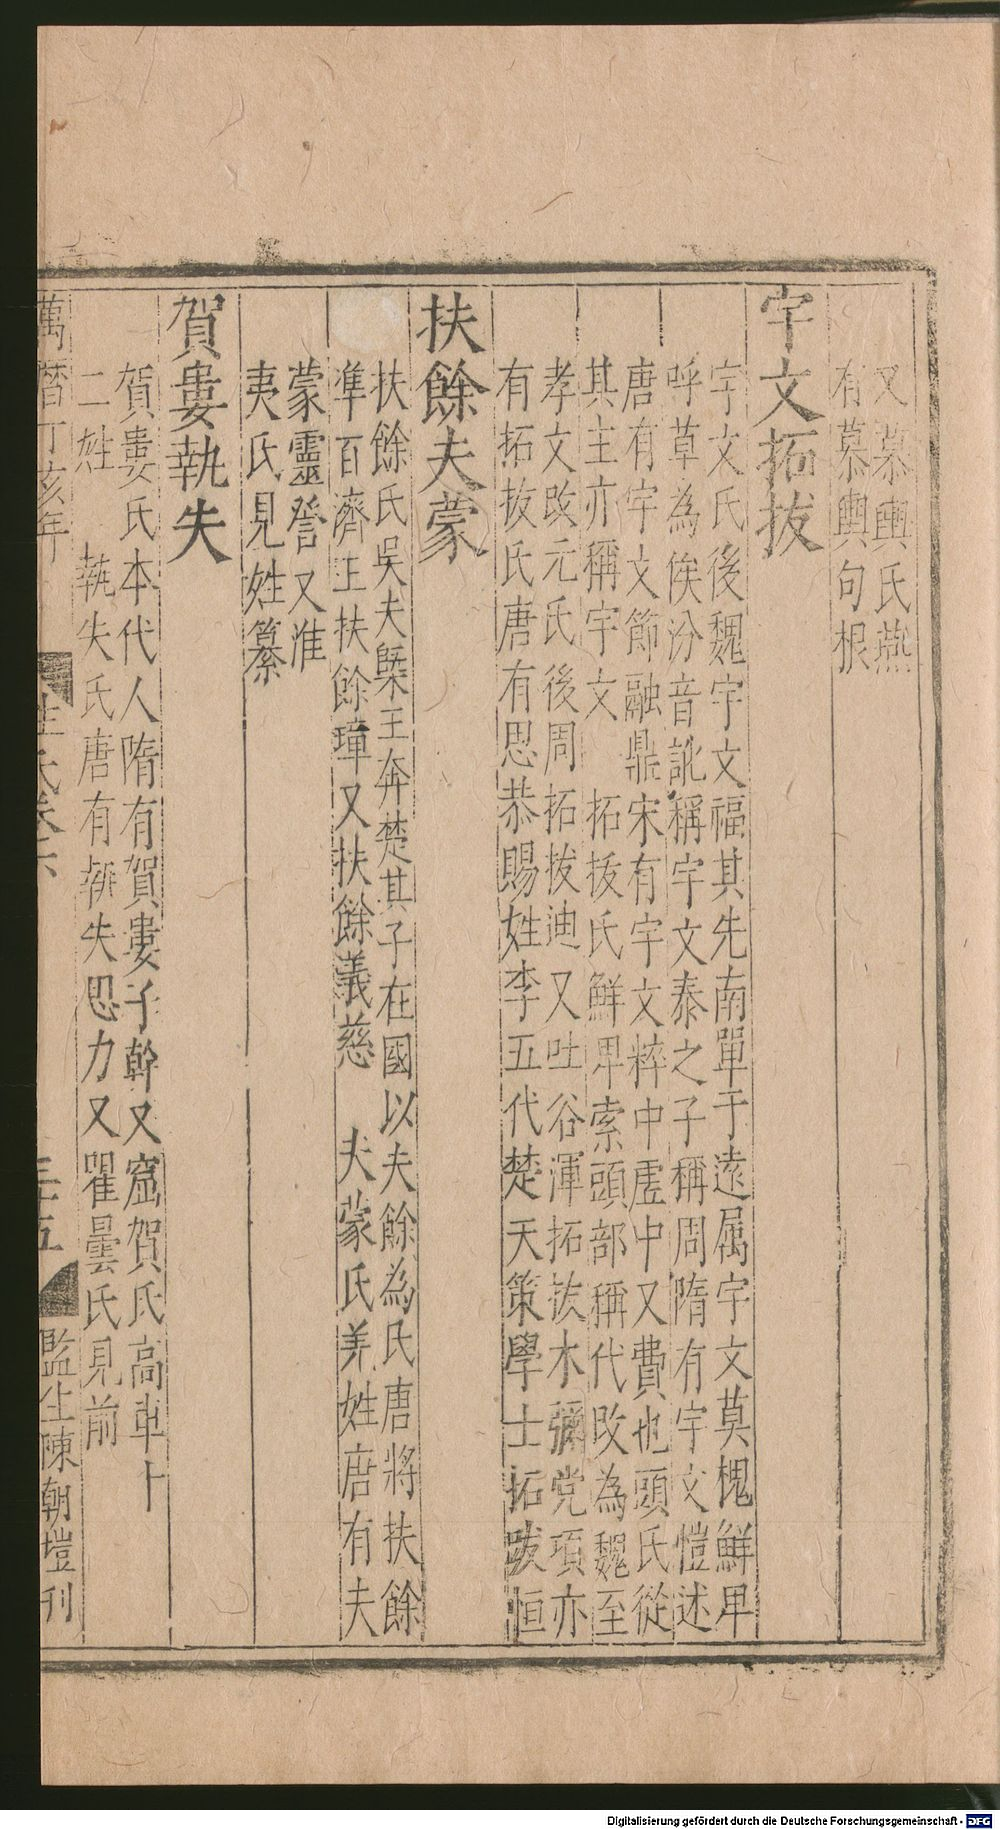 又慕輿氏燕
有慕輿句根
宇文拓拔
宇文氏後魏宇文福其先南單于遠属宇文莫槐鮮卑
呼草為俟汾音訛稱宇文泰之子稱周隋有宇文愷述
唐有宇文節融鼎宋有宇文粹中虛中又費也頭氏從
其主亦稱宇文 拓拔氏鮮卑索頭部稱代改為魏至
孝文改元氏後周拓拔迪又吐谷渾拓拔木彌党項亦
有拓拔氏唐有思恭賜姓李五代楚天策學士拓跋恒
扶餘夫蒙
扶餘氏吳夫槩王奔楚其子在國以夫餘為氏唐將扶餘
準百濟王扶餘璋又扶餘義慈 夫蒙氏羌姓唐有夫
蒙靈詧又淮
夷氏見姓纂
賀婁執失
賀婁氏本代人隋有賀婁子幹又窟賀氏高車十
二姓 執失氏唐有執失思力又瞿曇氏見前
萬曆丁亥年 姓氏卷六 三十五 監生陳朝塏刊
Digitalisierung gefördert durch die Deutsche Forschungsgemeinschaft - DFG